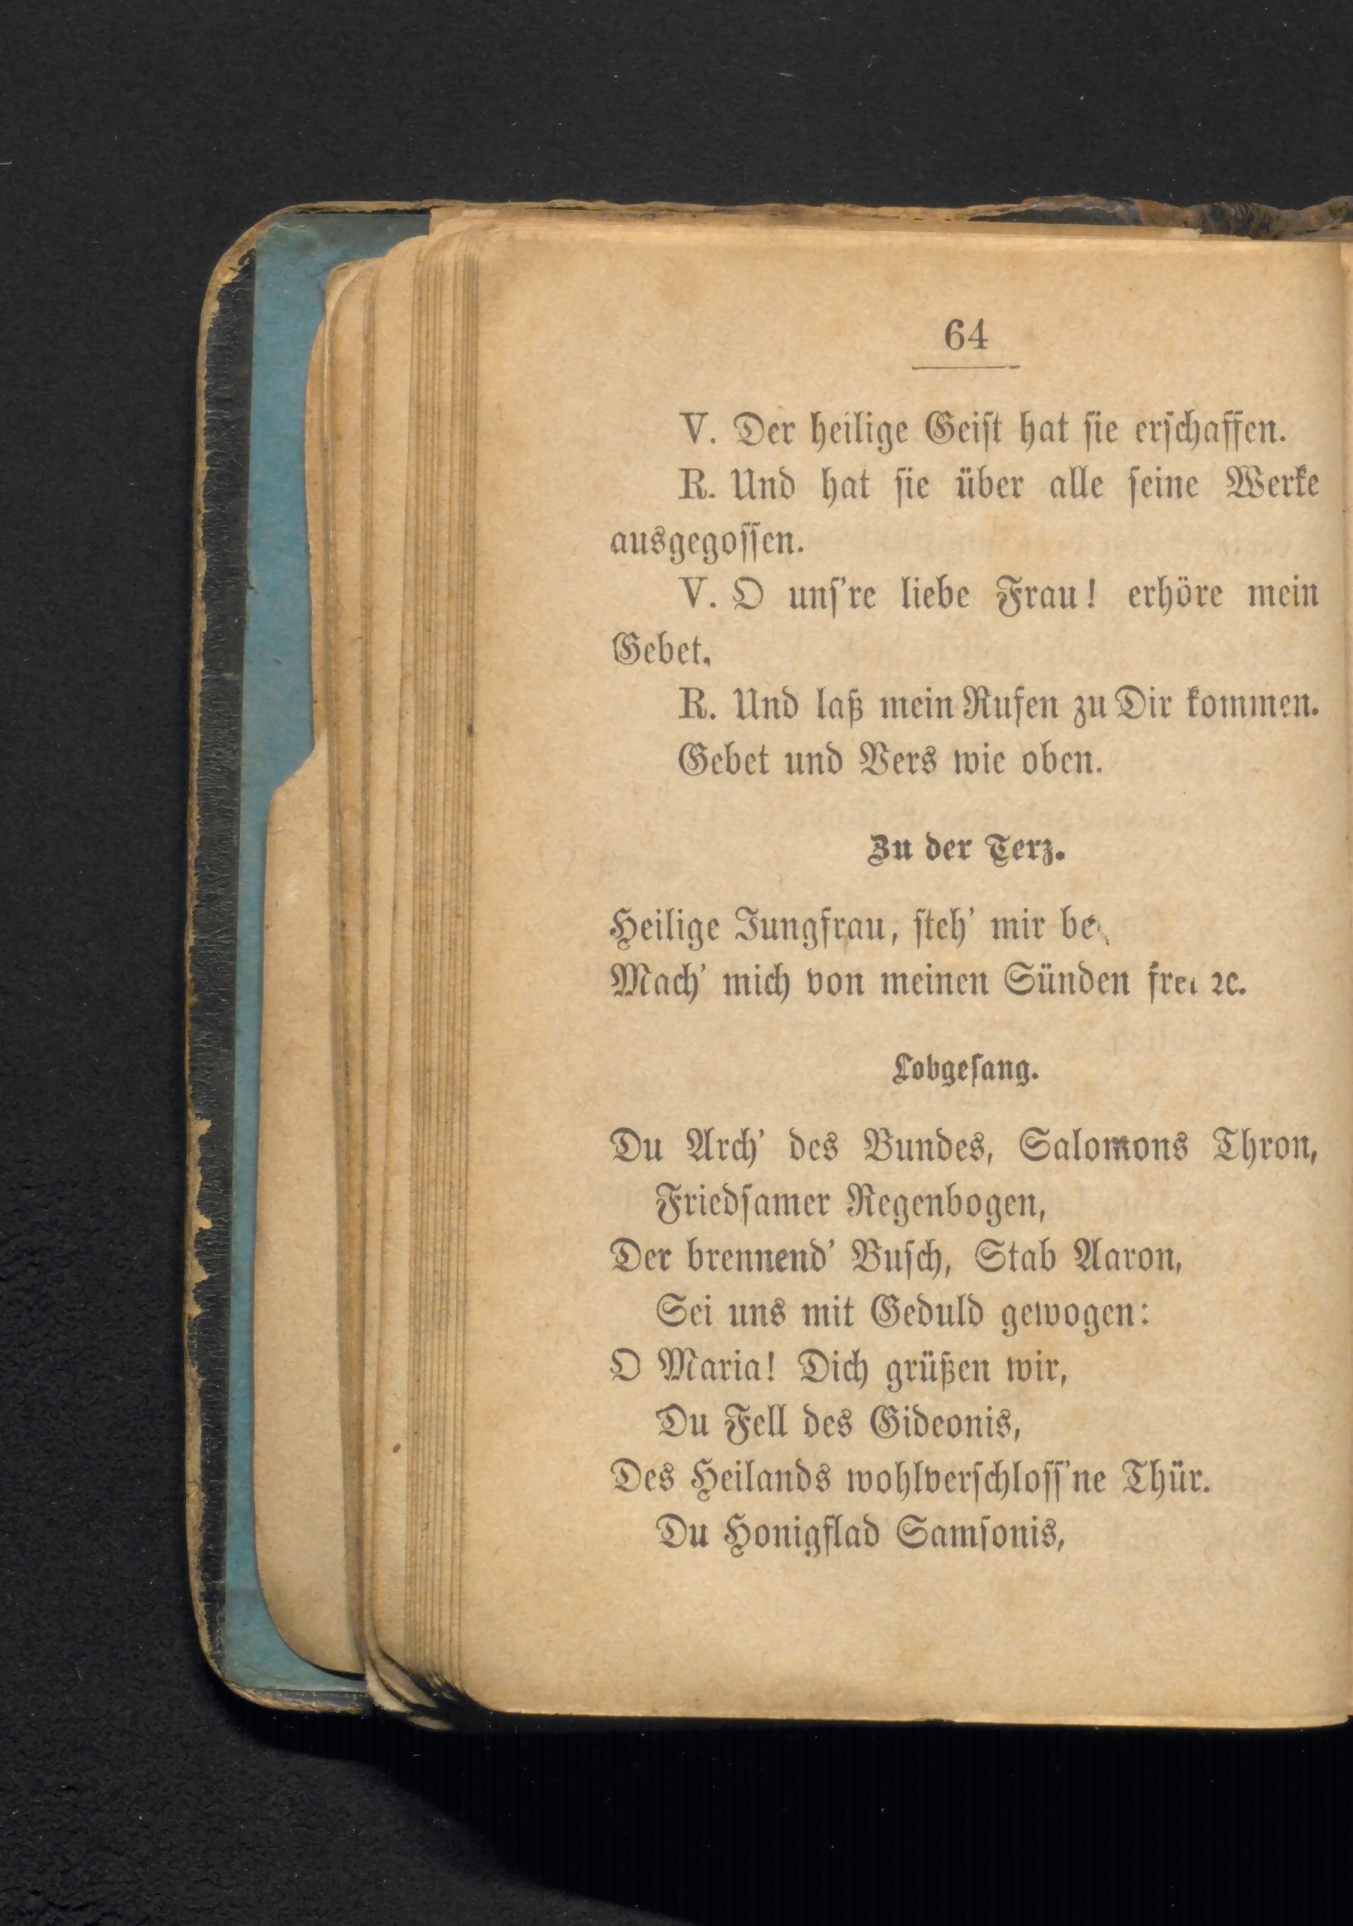 64
V. Der heilige Geist hat sie erschaffen.
R. Und hat sie über alle seine Werke
ausgegossen.
V. O uns're liebe Frau! erhöre mein
Gebet.
R. Und laß mein Rufen zu Dir kommen.
Gebet und Vers wie oben.
Zu der Terz.
Heilige Jungfrau, steh' mir bei
Mach' mich von meinen Sünden frei ꝛc.
Lobgesang.
Du Arch' des Bundes, Salomons Thron,
Friedsamer Regenbogen,
Der brennend' Busch, Stab Aaron,
Sei uns mit Geduld gewogen:
O Maria! Dich grüßen wir,
Du Fell des Gideonis,
Des Heilands wohlverschloss'ne Thür.
Du Honigflad Samsonis,